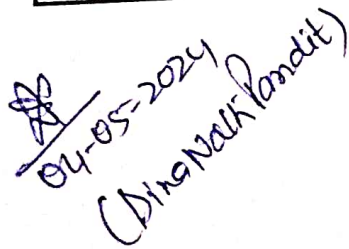 04-05-2024
(Dina Nath Pandit)